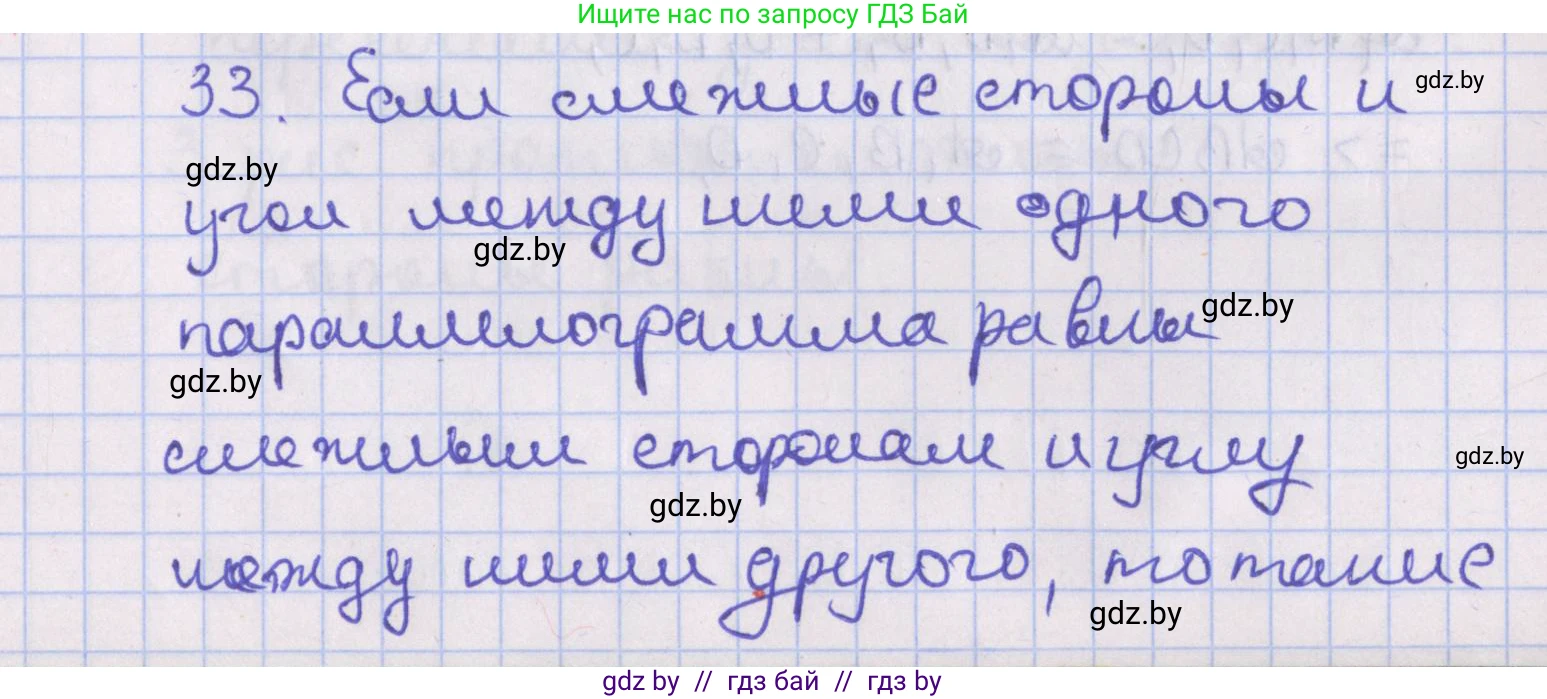 Ищите нас по запросу ГДЗ Бай
33. Если смежные стороны и gdz.by
gdz.by
угол между ними одного
gdz.by
параллелограмма равны gdz.by
gdz.by
смежным сторонам и углу gdz.by
gdz.by
между ними другого, то такие
gdz.by
gdz by // гдз бай // гдз by